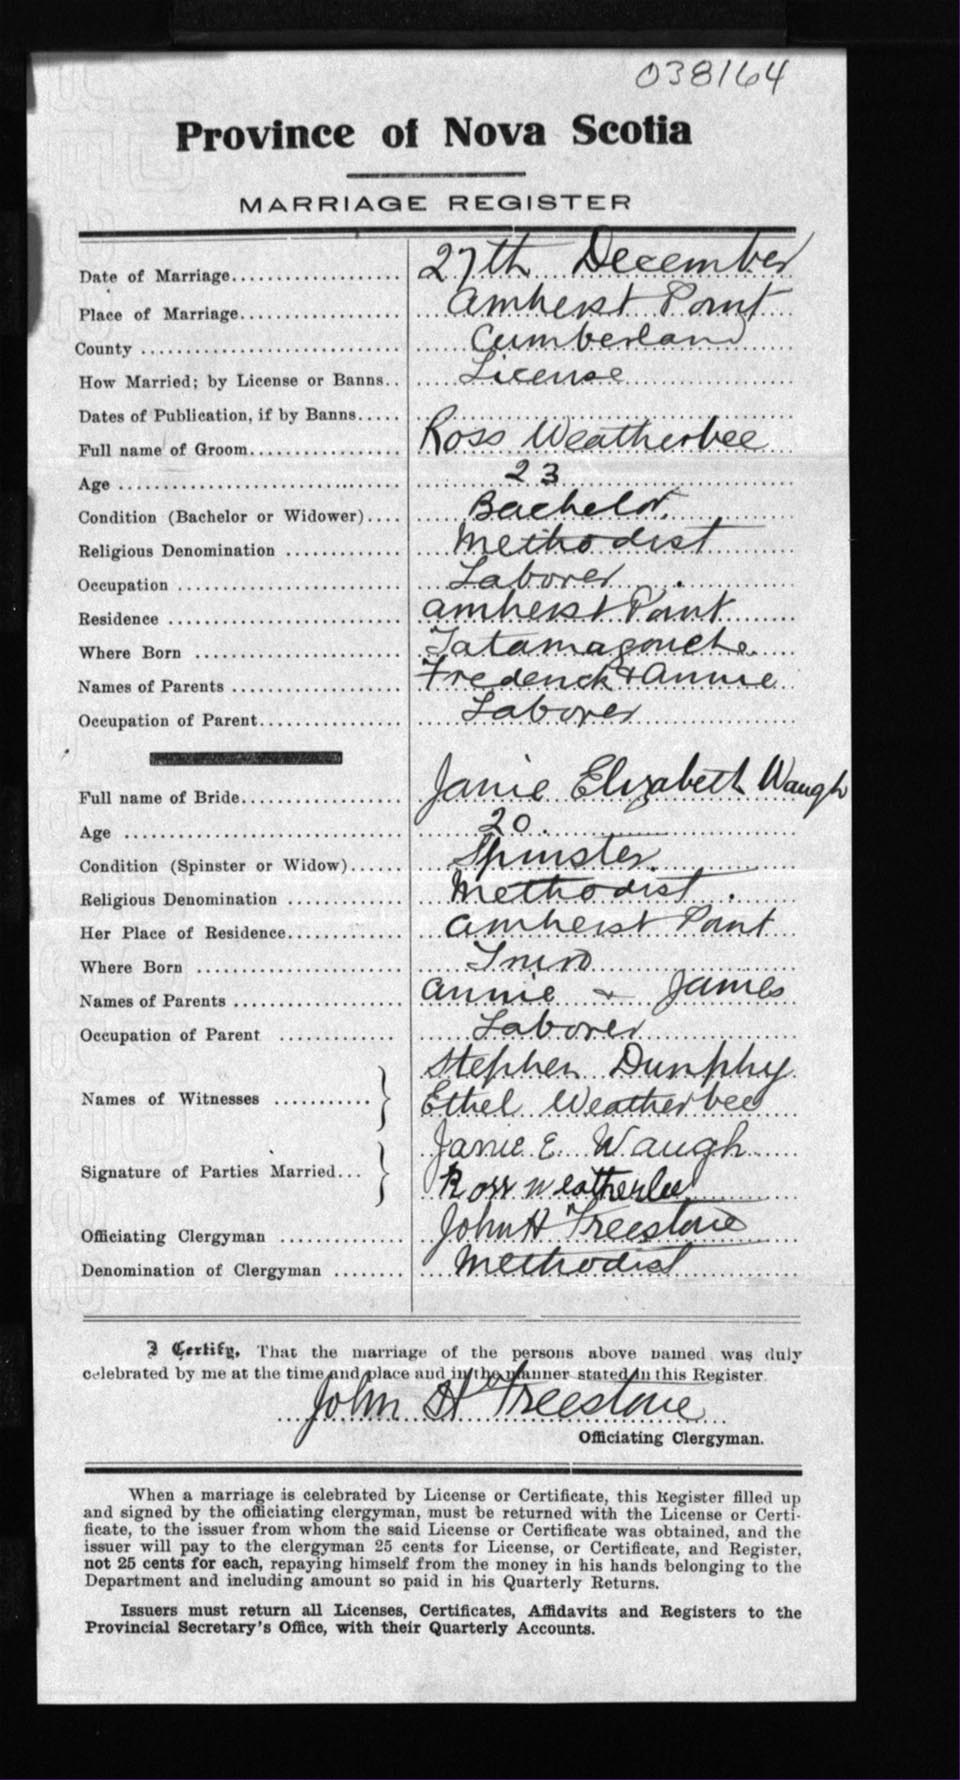 038164
Province of Nova Scotia
MARRIAGE REGISTER
Date of Marriage.................... 27th December
Place of Marriage................... Amherst Point
County .............................. Cumberland
How Married; by License or Banns.. License
Dates of Publication, if by Banns.....
Full name of Groom.................. Ross Weatherbee
Age .................................. 23
Condition (Bachelor or Widower).... Bachelor.
Religious Denomination ............. Methodist
Occupation .......................... Laborer.
Residence ........................... Amherst Point
Where Born ......................... Tatamagouche.
Names of Parents ................... Frederick & Annie
Occupation of Parent................ Laborer
Full name of Bride.................. Janie Elizabeth Waugh
Age .................................. 20.
Condition (Spinster or Widow)...... Spinster.
Religious Denomination ............. Methodist.
Her Place of Residence.............. Amherst Point
Where Born ......................... Truro
Names of Parents ................... Annie & James
Occupation of Parent ............. Laborer
Names of Witnesses ........... } Stephen Dunphy
Ethel Weatherbee
Signature of Parties Married... } Janie E. Waugh
Ross Weatherbee
Officiating Clergyman ............. John H Freestone
Denomination of Clergyman ........ Methodist
I Certify, That the marriage of the persons above named was duly
celebrated by me at the time and place and in the manner stated in this Register.
John H Freestone
Officiating Clergyman.
When a marriage is celebrated by License or Certificate, this Register filled up
and signed by the officiating clergyman, must be returned with the License or Certi-
ficate, to the issuer from whom the said License or Certificate was obtained, and the
issuer will pay to the clergyman 25 cents for License, or Certificate, and Register,
not 25 cents for each, repaying himself from the money in his hands belonging to the
Department and including amount so paid in his Quarterly Returns.
Issuers must return all Licenses, Certificates, Affidavits and Registers to the
Provincial Secretary's Office, with their Quarterly Accounts.